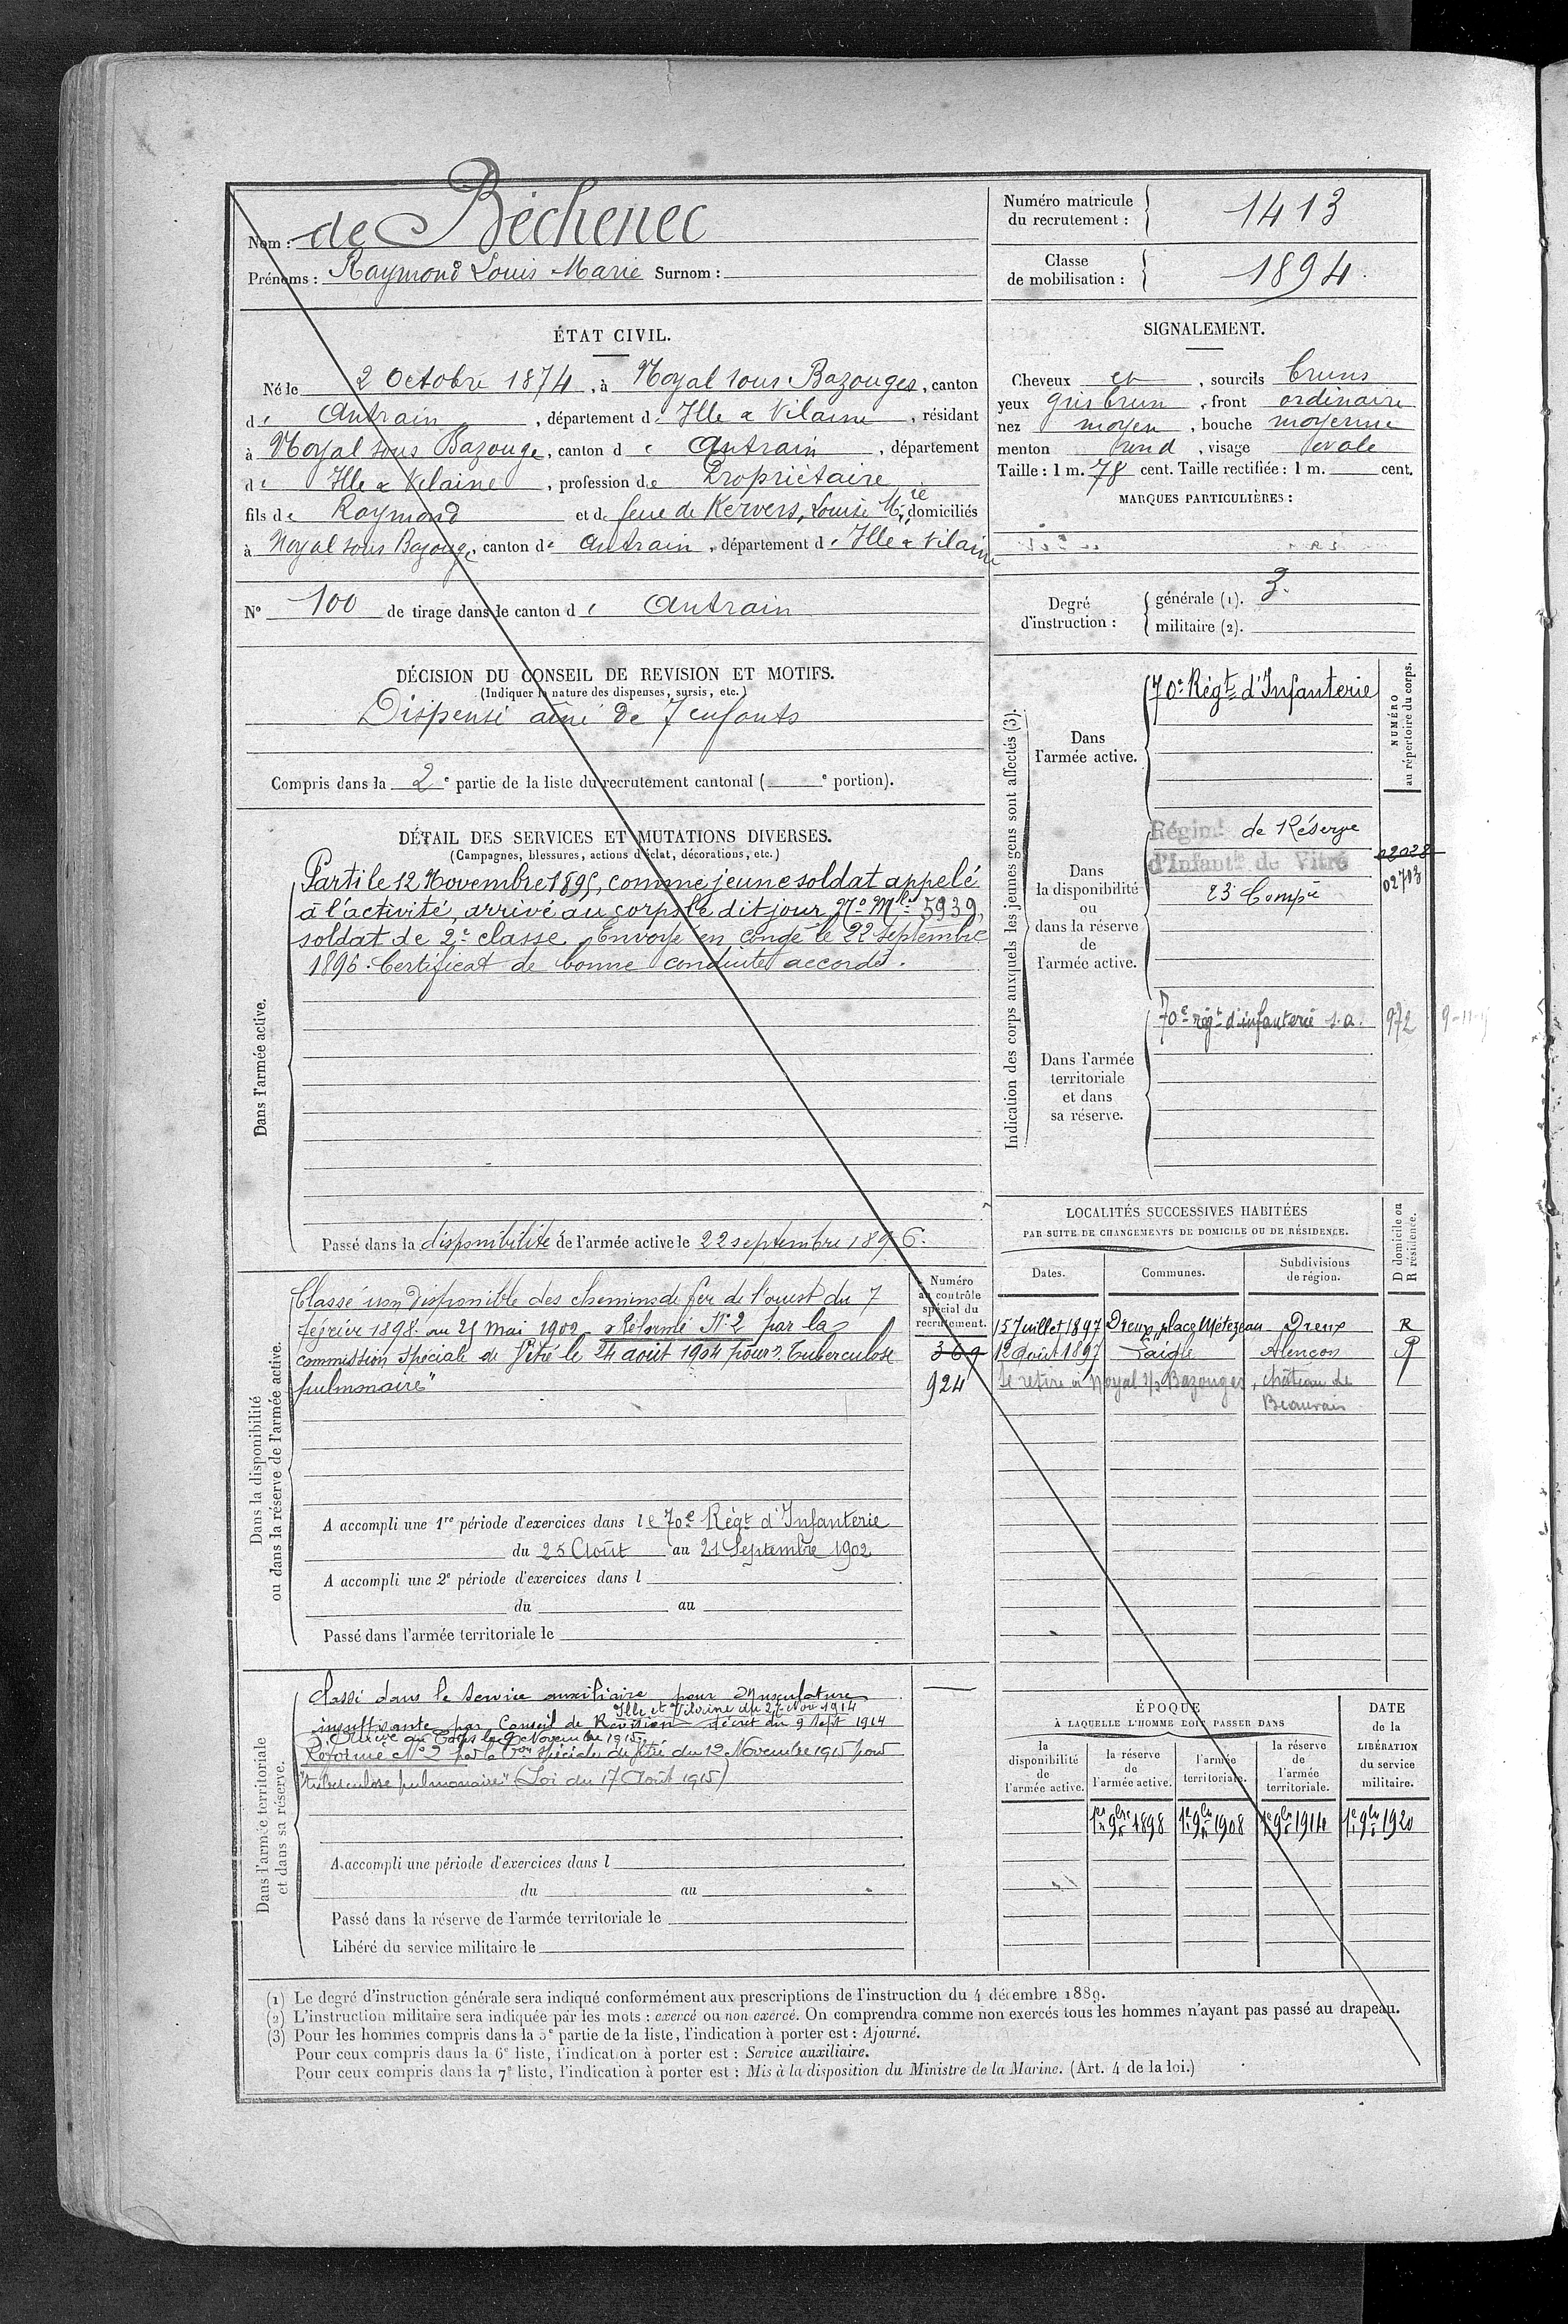 Nom : de Béchenec
Prénoms : Raymond Louis Marie Surnom :
Numéro matricule du recrutement : 1413
Classe de mobilisation : 1894.
ÉTAT CIVIL.
Né le 2 Octobre 1874, à Noyal sous Bazouges, canton
d e Antrain, département d' Ille & Vilaine, résidant
à Noyal sous Bazouge, canton d e Antrain, département
d' Ille & Vilaine, profession de Propriétaire
fils de Raymond et de feue de Kervers, Louise Mie, domiciliés
à Noyal sous Bazouge, canton d' Antrain, département d' Ille & Vilaine
N° 100 de tirage dans le canton d' Antrain
SIGNALEMENT.
Cheveux et, sourcils bruns
yeux gris brun, front ordinaire
nez moyen, bouche moyenne
menton rond, visage ovale
Taille : 1 m. 78 cent. Taille rectifiée : 1 m. cent.
MARQUES PARTICULIÈRES :
Degré d'instruction :
générale (1). 3.
militaire (2).
DÉCISION DU CONSEIL DE REVISION ET MOTIFS.
(Indiquer la nature des dispenses, sursis, etc.)
Dispensé aîné de 7 enfants
Compris dans la 2e partie de la liste du recrutement cantonal ( e portion).
DÉTAIL DES SERVICES ET MUTATIONS DIVERSES.
(Campagnes, blessures, actions d'éclat, décorations, etc.)
Dans l'armée active.
Parti le 12 Novembre 1895, comme jeune soldat appelé
à l'activité, arrivé au corps le dit jour, No Mle 5939,
soldat de 2e classe. Envoyé en congé le 22 septembre
1896. Certificat de bonne conduite accordé.
Passé dans la disponibilité de l'armée active le 22 septembre 1896.
Indication des corps auxquels les jeunes gens sont affectés (3).
NUMÉRO au répertoire du corps.
Dans l'armée active.
70e Régt d'Infanterie
Dans la disponibilité ou dans la réserve de l'armée active.
Régimt de Réserve
d'Infantie de Vitré
23e Compie
02028
02703
Dans l'armée territoriale et dans sa réserve.
70e régt d'infanterie s.a. 972
Dans la disponibilité ou dans la réserve de l'armée active.
Classé non disponible des chemins de fer de l'ouest du 7
février 1898 au 21 mai 1902. Réformé N° 2 par la
commission spéciale de Vitré le 24 août 1904 pour "Tuberculose
pulmonaire"
Numéro au contrôle spécial du recrutement.
369
924
A accompli une 1re période d'exercices dans le 70e Régt d'Infanterie
du 25 Août au 21 Septembre 1902
A accompli une 2e période d'exercices dans l
du au
Passé dans l'armée territoriale le
LOCALITÉS SUCCESSIVES HABITÉES
PAR SUITE DE CHANGEMENTS DE DOMICILE OU DE RÉSIDENCE.
D domicile ou R résidence.
Dates. Communes. Subdivisions de région.
15 Juillet 1897 Dreux, place Métezeau Dreux R
12 Août 1897 Laigle Alençon R
se retire à Noyal s/s Bazouges, château de
Beauvais
Dans l'armée territoriale et dans sa réserve.
Classé dans le service auxiliaire pour musculature
insuffisante par Conseil de Révision Ille et Vilaine du 27 Nov 1914 décret du 9 Sept 1914
Arrivé au Corps le 9 Novembre 1915.
Réformé N° 2 par la Con spéciale de Vitré du 12 Novembre 1915 pour
"tuberculose pulmonaire" (Loi du 17 Août 1915)
A accompli une période d'exercices dans l
du au
Passé dans la réserve de l'armée territoriale le
Libéré du service militaire le
ÉPOQUE
À LAQUELLE L'HOMME DOIT PASSER DANS
la disponibilité de l'armée active.
la réserve de l'armée active.
l'armée territoriale.
la réserve de l'armée territoriale.
DATE de la LIBÉRATION du service militaire.
1er 9bre 1898 1er 9bre 1908 1er 9bre 1914 1er 9bre 1920
(1) Le degré d'instruction générale sera indiqué conformément aux prescriptions de l'instruction du 4 décembre 1889.
(2) L'instruction militaire sera indiquée par les mots : exercé ou non exercé. On comprendra comme non exercés tous les hommes n'ayant pas passé au drapeau.
(3) Pour les hommes compris dans la 5e partie de la liste, l'indication à porter est : Ajourné.
Pour ceux compris dans la 6e liste, l'indication à porter est : Service auxiliaire.
Pour ceux compris dans la 7e liste, l'indication à porter est : Mis à la disposition du Ministre de la Marine. (Art. 4 de la loi.)